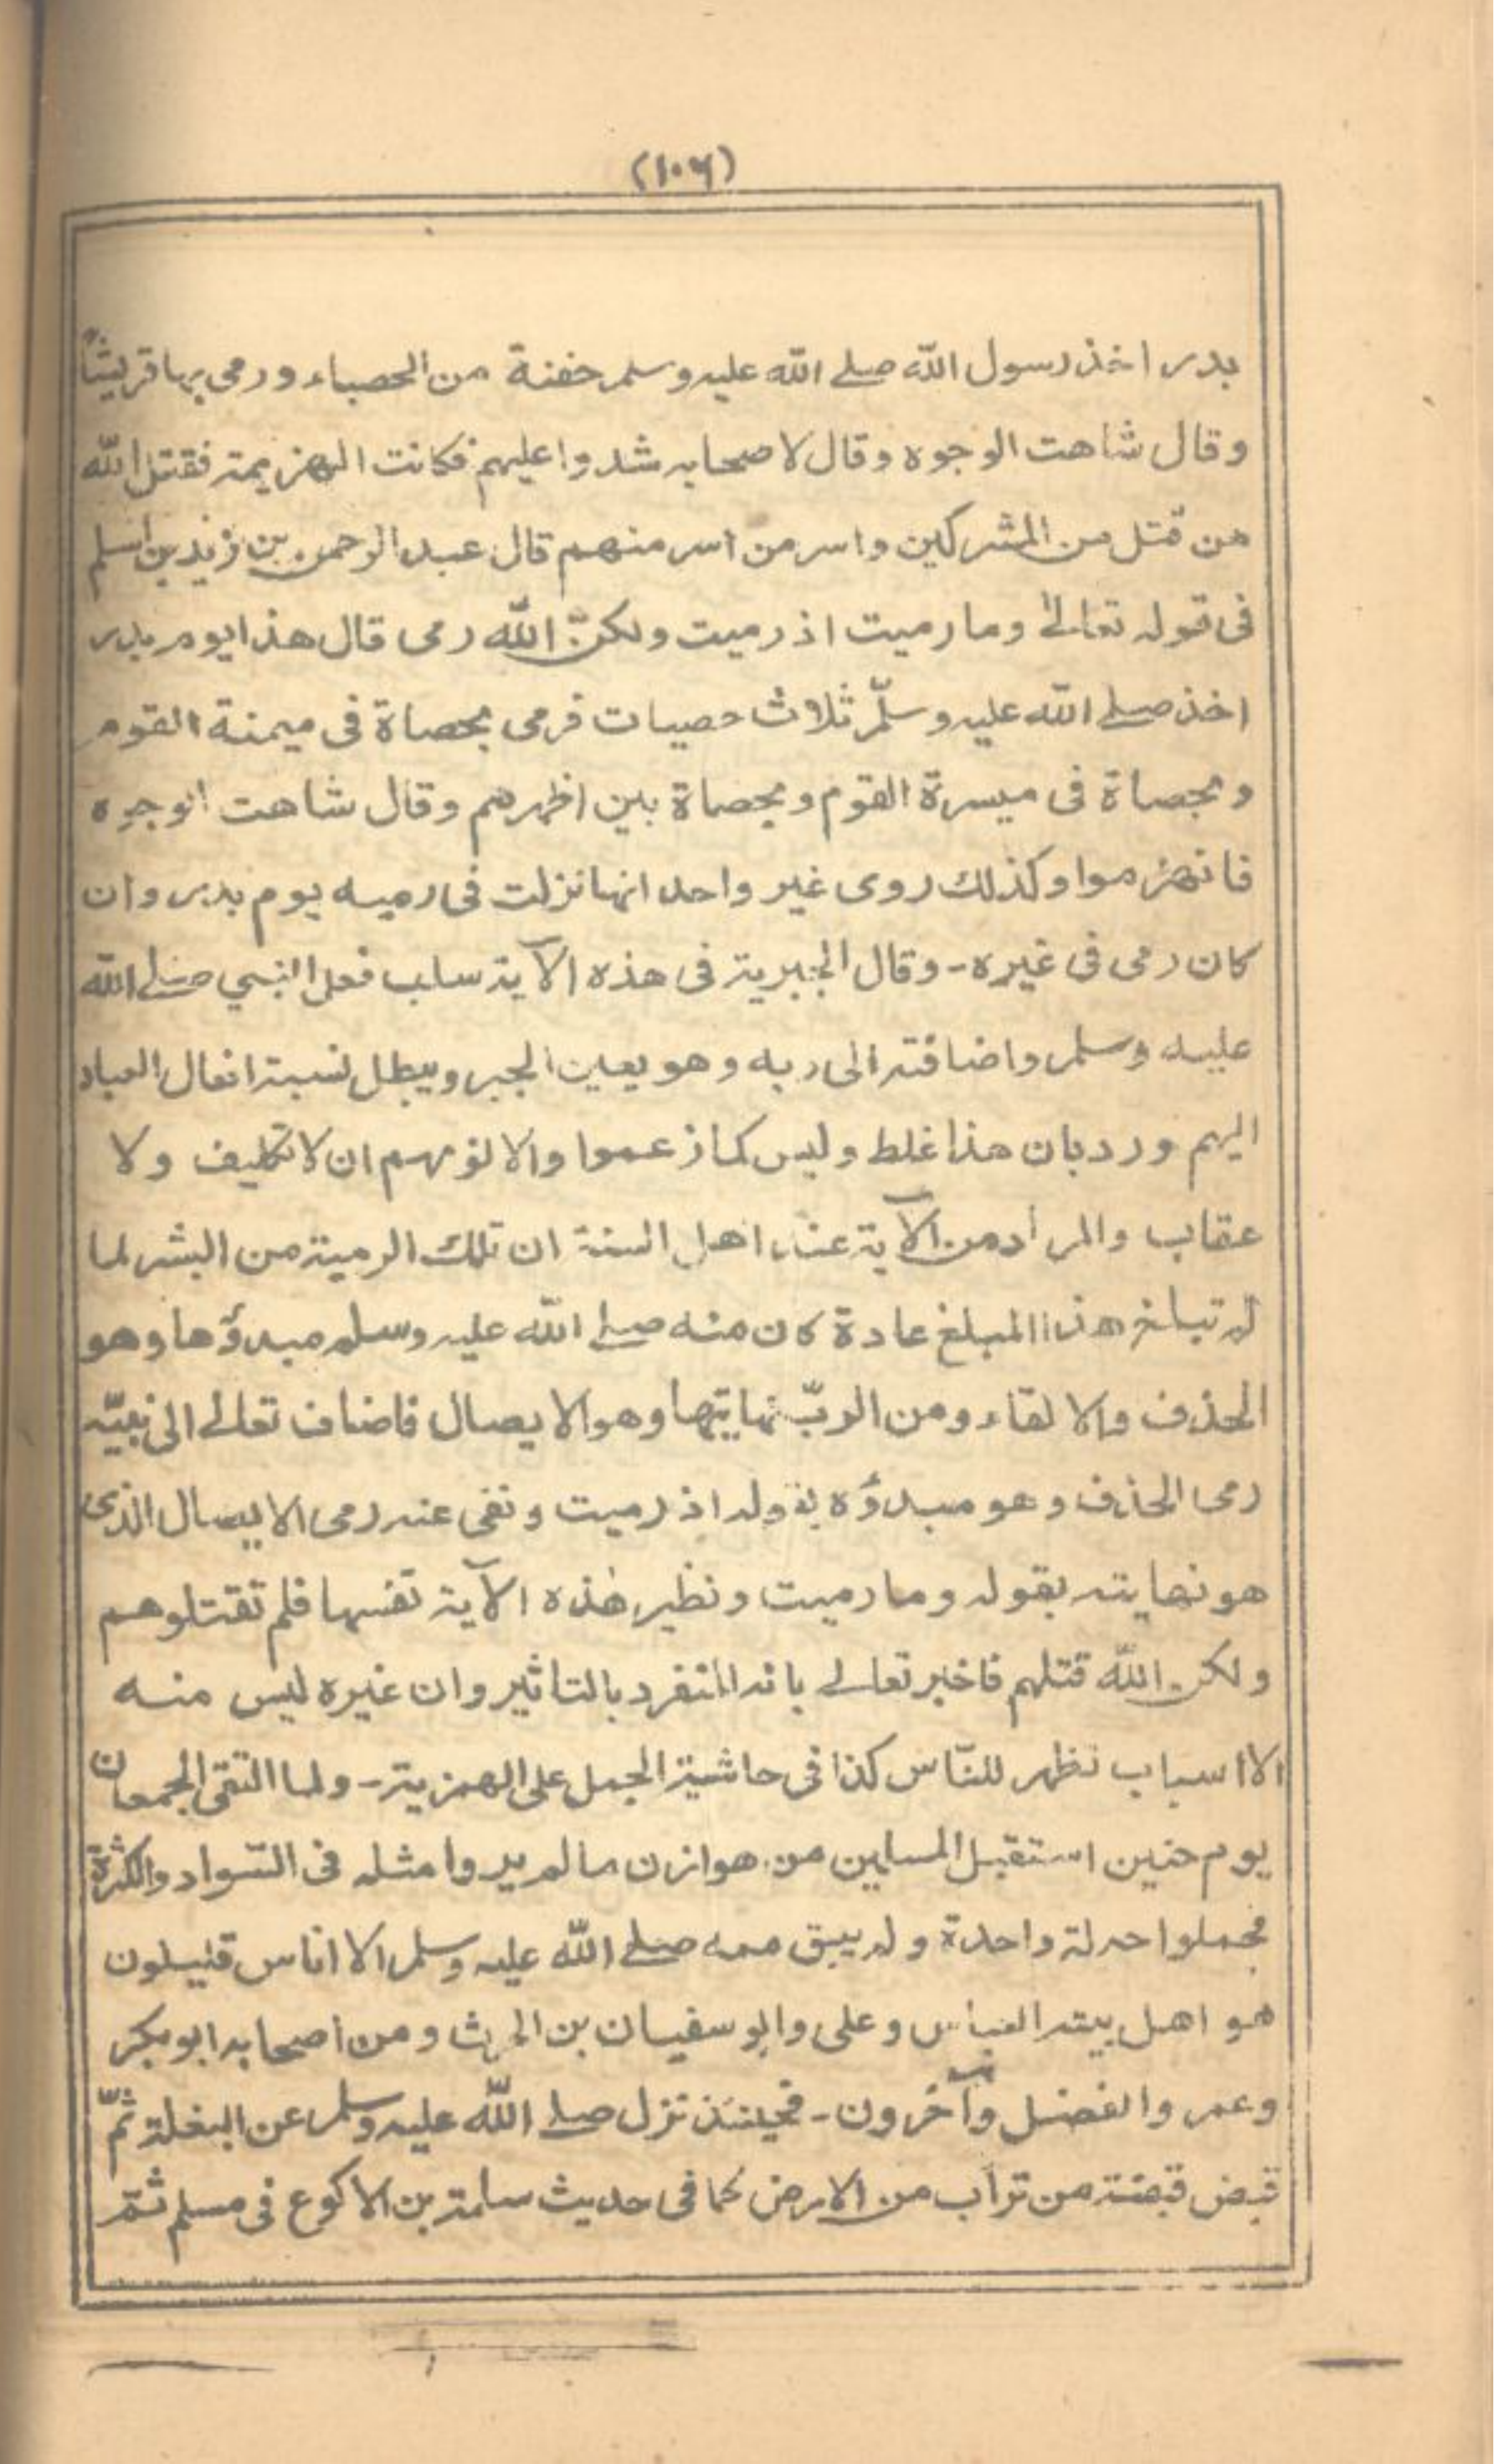 (١٠٦)
بدر اخذ رسول الله صلے الله عليه وسلم حفنة من الحصباء ورمى بها قريشاً
وقال شاهت الوجوه وقال لاصحابه شدوا عليهم فكانت الهزيمة فقتل الله
من قتل من المشركين واسر من اسر منهم قال عبد الرحمن بن زيد بن اسلم
فى قوله تعالىٰ وما رميت اذ رميت ولكنّ الله رمى قال هذا يوم بدر
اخذ صلے الله عليه وسلّم ثلاث حصيات فرمى بحصاة فى ميمنة القوم
وبحصاة فى ميسرة القوم وبحصاة بين اظهرهم وقال شاهت الوجوه
فانهزموا وكذلك روى غير واحد انها نزلت فى رميه يوم بدر وان
كان رمى فى غيره - وقال الجبرية فى هذه الآية سلب فعل النبي صلے الله
عليه وسلم واضافته الى ربه وهو يعين الجبر ويبطل نسبة افعال العباد
اليهم ورد بان هذا غلط وليس كما زعموا والا لزمهم ان لا تكليف ولا
عقاب والمراد من الآية عند اهل السنة ان تلك الرمية من البشر لما
لم تبلغ هذا المبلغ عادة كان منه صلے الله عليه وسلم مبدؤها وهو
الحذف والالقاء ومن الربّ نهايتها وهو الايصال فاضاف تعالے الى نبيّه
رمى الحذف وهو مبدؤه بقوله اذ رميت ونفى عنه رمى الايصال الذى
هو نهايته بقوله وما رميت ونظير هٰذه الآية نفسها فلم تقتلوهم
ولكن الله قتلهم فاخبر تعالے بانه المنفرد بالتاثير وان غيره ليس منه
الا اسباب تظهر للنّاس كذا فى حاشية الجمل على الهمزية - ولما التقى الجمعان
يوم حنين استقبل المسلمين من هوازن ما لم يروا مثله فى السّواد والكثرة
فحملوا حملة واحدة ولم يبق معه صلے الله عليه وسلم الا اناس قليلون
هو اهل بيته العباس وعلى وابو سفيان بن الحرث ومن اصحابه ابو بكر
وعمر والفضل وآخرون - فحينئذ نزل صلے الله عليه وسلم عن البغلة ثمّ
قبض قبضة من تراب من الارض كما فى حديث سلمة بن الاكوع فى مسلم ثم